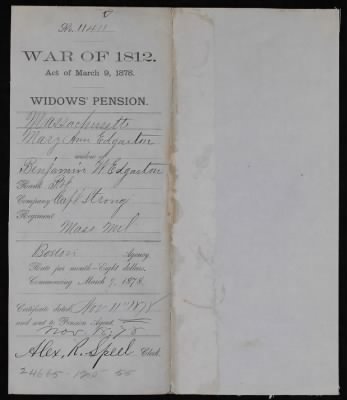 No. 11411
WAR OF 1812.
Act of March 9, 1878.
WIDOWS' PENSION.
Massachusetts
Mary Ann Edgarton
widow of
Benjamin W Edgarton
Rank Pvt
Company Capt Strong
Regiment
Mass Mil
Boston Agency.
Rate per month—Eight dollars.
Commencing March 9, 1878.
Certificate dated Nov 11" 1878
and sent to Pension Agent,
Nov
Alex. R. Speel Clerk.
24665 55